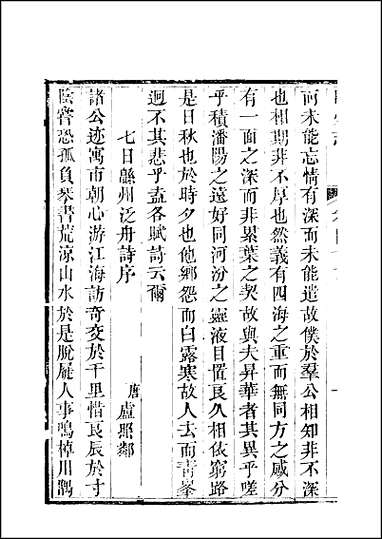 而未能忘情有深而未能遣故僕於羣公相知非不深
也相期非不厚也然義有四海之重而無同方之感分
有一面之深而非累葉之契故與夫昇華者其異乎嗟
乎積潘陽之遠好同河汾之靈液目置良久相依窮路
是日秋也於時夕也他鄉怨而白露寒故人去而青峯
迥不其悲乎盍各賦詩云爾
七日緜州泛舟詩序
唐 盧照鄰
諸公迹寓市朝心游江海訪奇交於千里惜良辰於寸
陰嘗恐孤負琴書荒涼山水於是脫屣人事鳴棹川隅